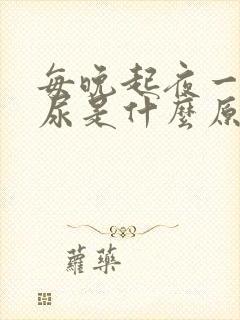 每晚起夜一
尿是什麼原
蘿藥